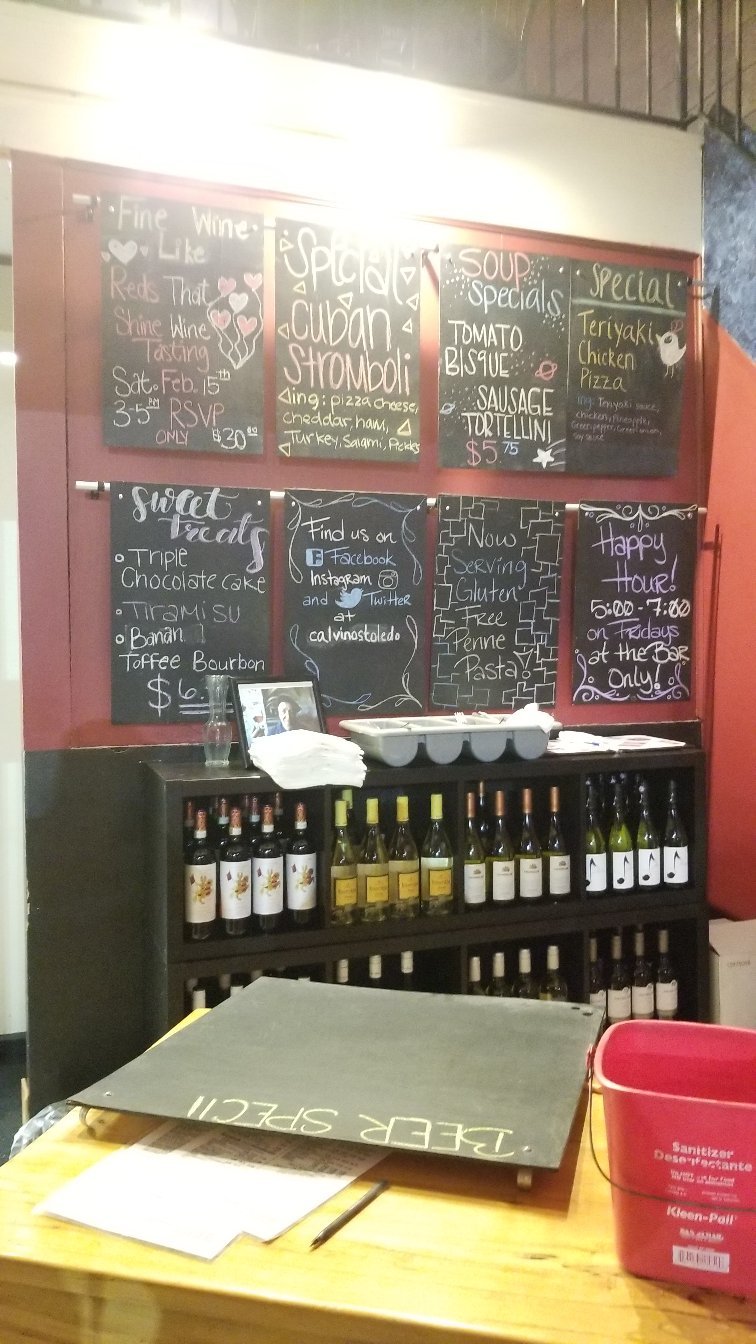 Fine Wine
Like
Reds That
Shine Wine
Tasting
Sat. Feb. 15th
3-5PM RSVP
ONLY $30.00
Special
Cuban
Stromboli
ing: pizza cheese,
cheddar, ham,
Turkey, Salami, Pickles
SOUP
specials
TOMATO
BISQUE
SAUSAGE
TORTELLINI
$5.75
Special
Teriyaki
Chicken
Pizza
ing: Teriyaki sauce,
chicken, Pineapple,
Green pepper, Green onion,
Soy sauce
Sweet
treats
Triple
Chocolate cake
Tiramisu
Banan
Toffee Bourbon
$6.
Find us on
f Facebook
Instagram
and Twitter
at
calvinostoledo
Now
Serving
Gluten
Free
Penne
Pasta!
Happy
Hour!
5:00-7:00
on Fridays
at the Bar
Only!
BEER SPECI
Sanitizer
Desinfectante
Kleen-Pail